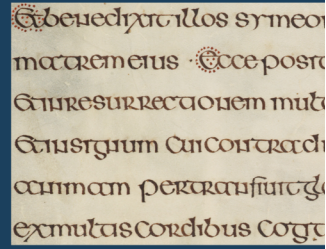 Et benedixit illos symeon
matrem eius · Ecce posit
Et in resurrectionem mult
Et in signum Cui Contradi
animam pertransiuit gla
ex multis Cordibus Cogit